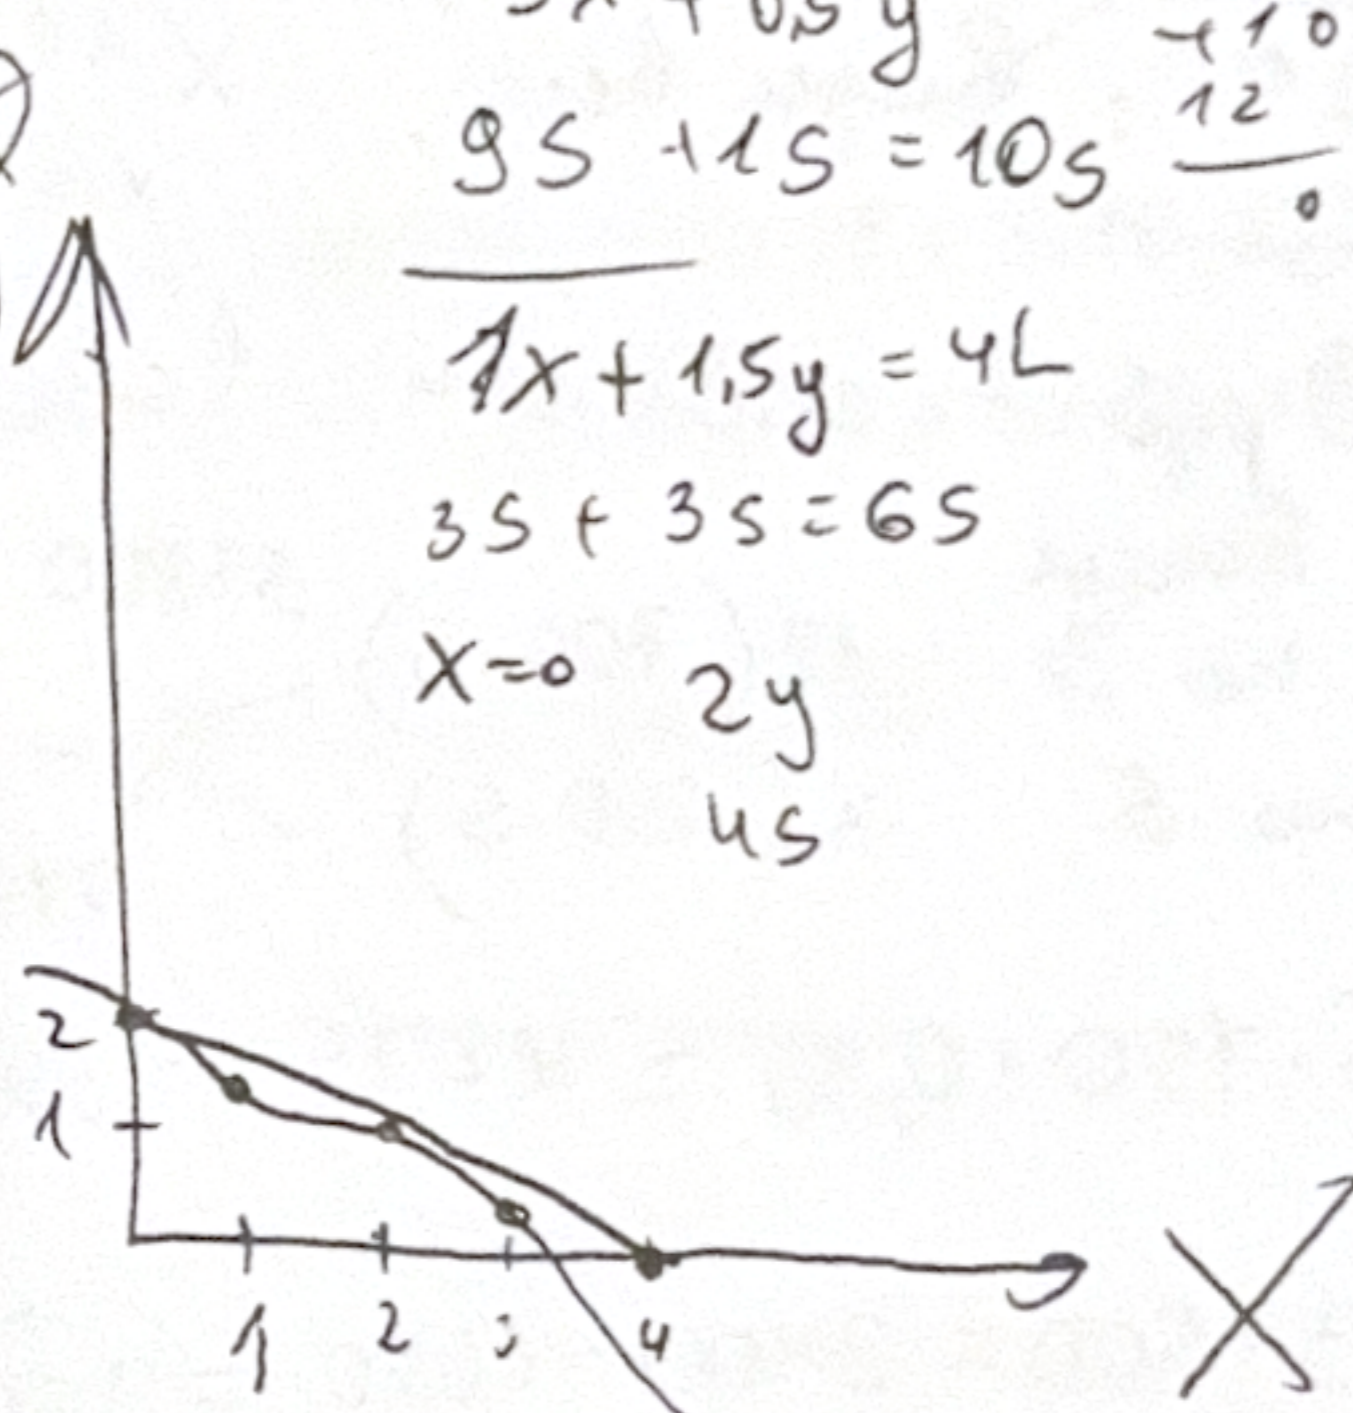 +10
9S +1S = 10S
12
0
1x + 1,5y = 4L
3S + 3S = 6S
x=0 2y
4S
2
1
1 2 4
X